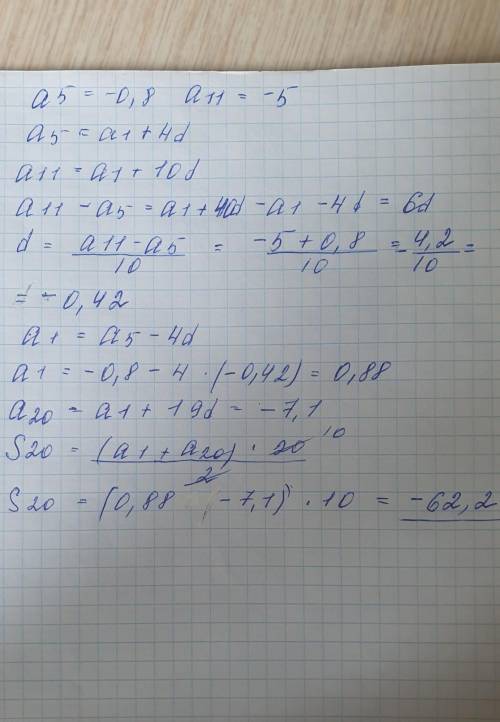 a5 = -0,8 a11 = -5
a5 = a1 + 4d
a11 = a1 + 10d
a11 - a5 = a1 + 10d - a1 - 4d = 6d
d = a11 - a5 / 10 = -5 + 0,8 / 10 = -4,2 / 10 =
= -0,42
a1 = a5 - 4d
a1 = -0,8 - 4 · (-0,42) = 0,88
a20 = a1 + 19d = -7,1
S20 = (a1 + a20) · 20 / 2 10
S20 = (0,88 - 7,1) · 10 = -62,2